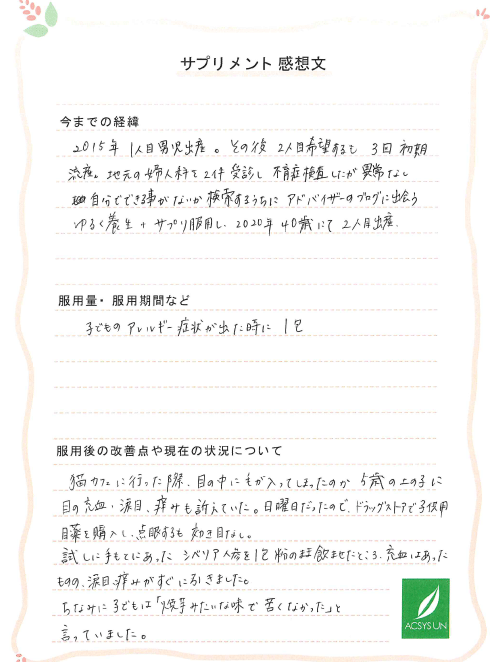 サプリメント 感想文
今までの経緯
2015年 1人目男児出産。その後 2人目希望するも 3回 初期
流産。地元の婦人科を2件 受診し 不育症検査したが異常なし
自分でできる事がないか 検索するうちに アドバイザーのブログに出会う
ゆるく養生 + サプリ服用し、2020年 40歳にて 2人目出産.
服用量・服用期間など
子どもの アレルギー症状が出た時に 1包
服用後の改善点や現在の状況について
猫カフェに行った際、目の中に毛が入ってしまったのか 5歳の上の子に
目の充血・涙目、痒みも訴えていた。日曜日だったので、ドラッグストアで子供用
目薬を購入し、点眼するも 効き目なし。
試しに手もとにあった シベリア人参を1包 粉のまま飲ませたところ、充血はあった
ものの、涙目、痒みがすぐに引きました。
ちなみに 子どもは「焼芋みたいな味で 苦くなかった」と
言っていました。
ACSYS UN